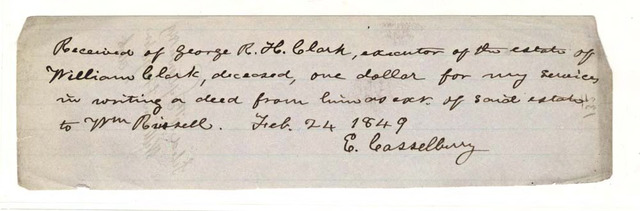 Received of George R. H. Clark, executor of the estate of
William Clark, deceased, one dollar for my services
in writing a deed from him as exr. of said estate
to Wm Rissell. Feb. 24 1849
E. Casselberry